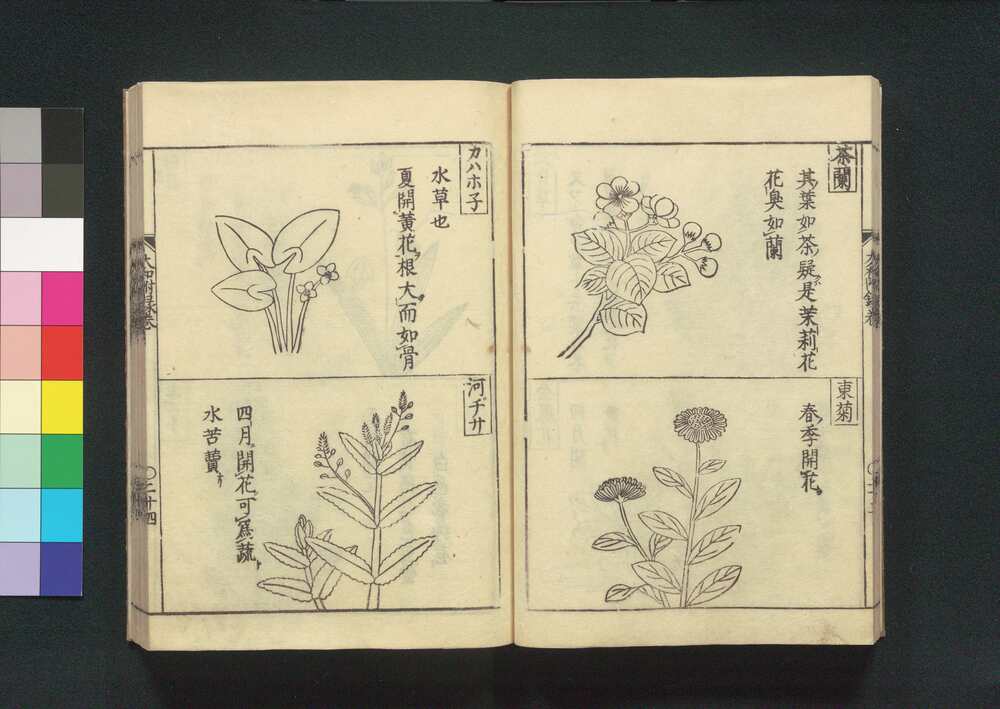 茶蘭
其葉如茶疑是茉莉花
花臭如蘭
東菊
春季開花
大和附録巻
カハホ子
水草也
夏開黄花根大而如骨
河ヂサ
四月開花可為蔬
水苦蕒
大和附録巻
〇二十四